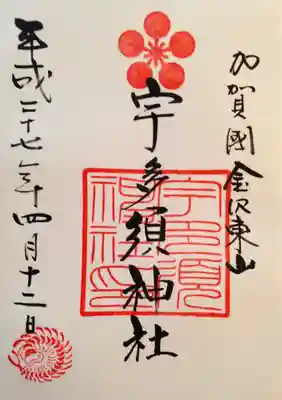 加賀國金沢東山
宇多須神社
平成二十七年四月十二日
宇多須
神社印